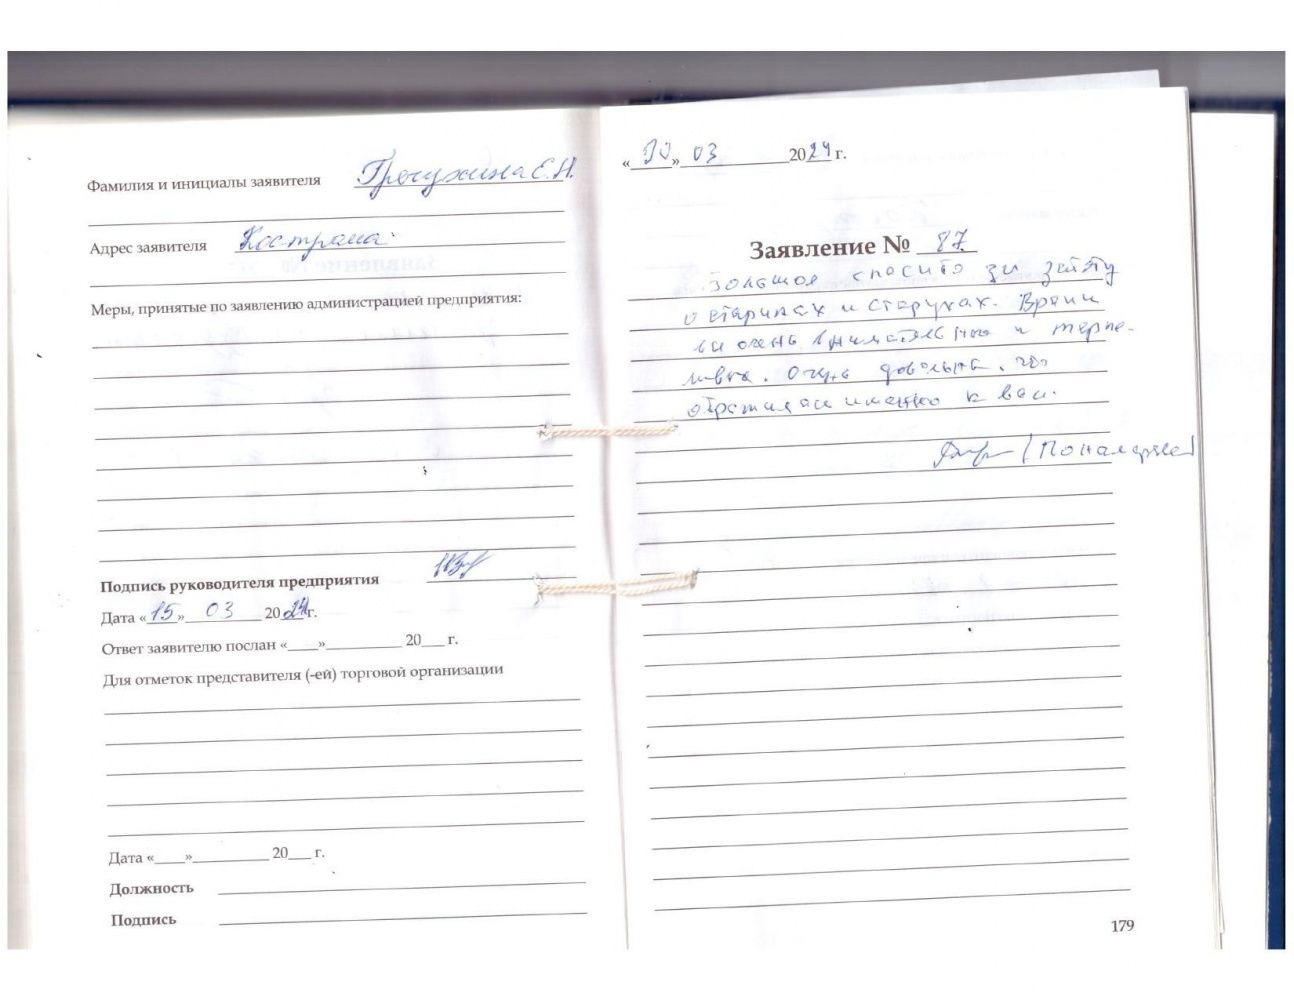 Фамилия и инициалы заявителя Прочухина Е.Н.
Адрес заявителя Кострома
Меры, принятые по заявлению администрацией предприятия:
Подпись руководителя предприятия
Дата «15» 03 2024 г.
Ответ заявителю послан «___»_________ 20___ г.
Для отметок представителя (-ей) торговой организации
Дата «___»_________ 20___ г.
Должность
Подпись
«30» 03 2024 г.
Заявление № 87
Большое спасибо за заботу
о стариках и старухах. Врачи
вы очень внимательны и терпе-
ливы. Очень довольна, что
обратилась именно к вам.
179